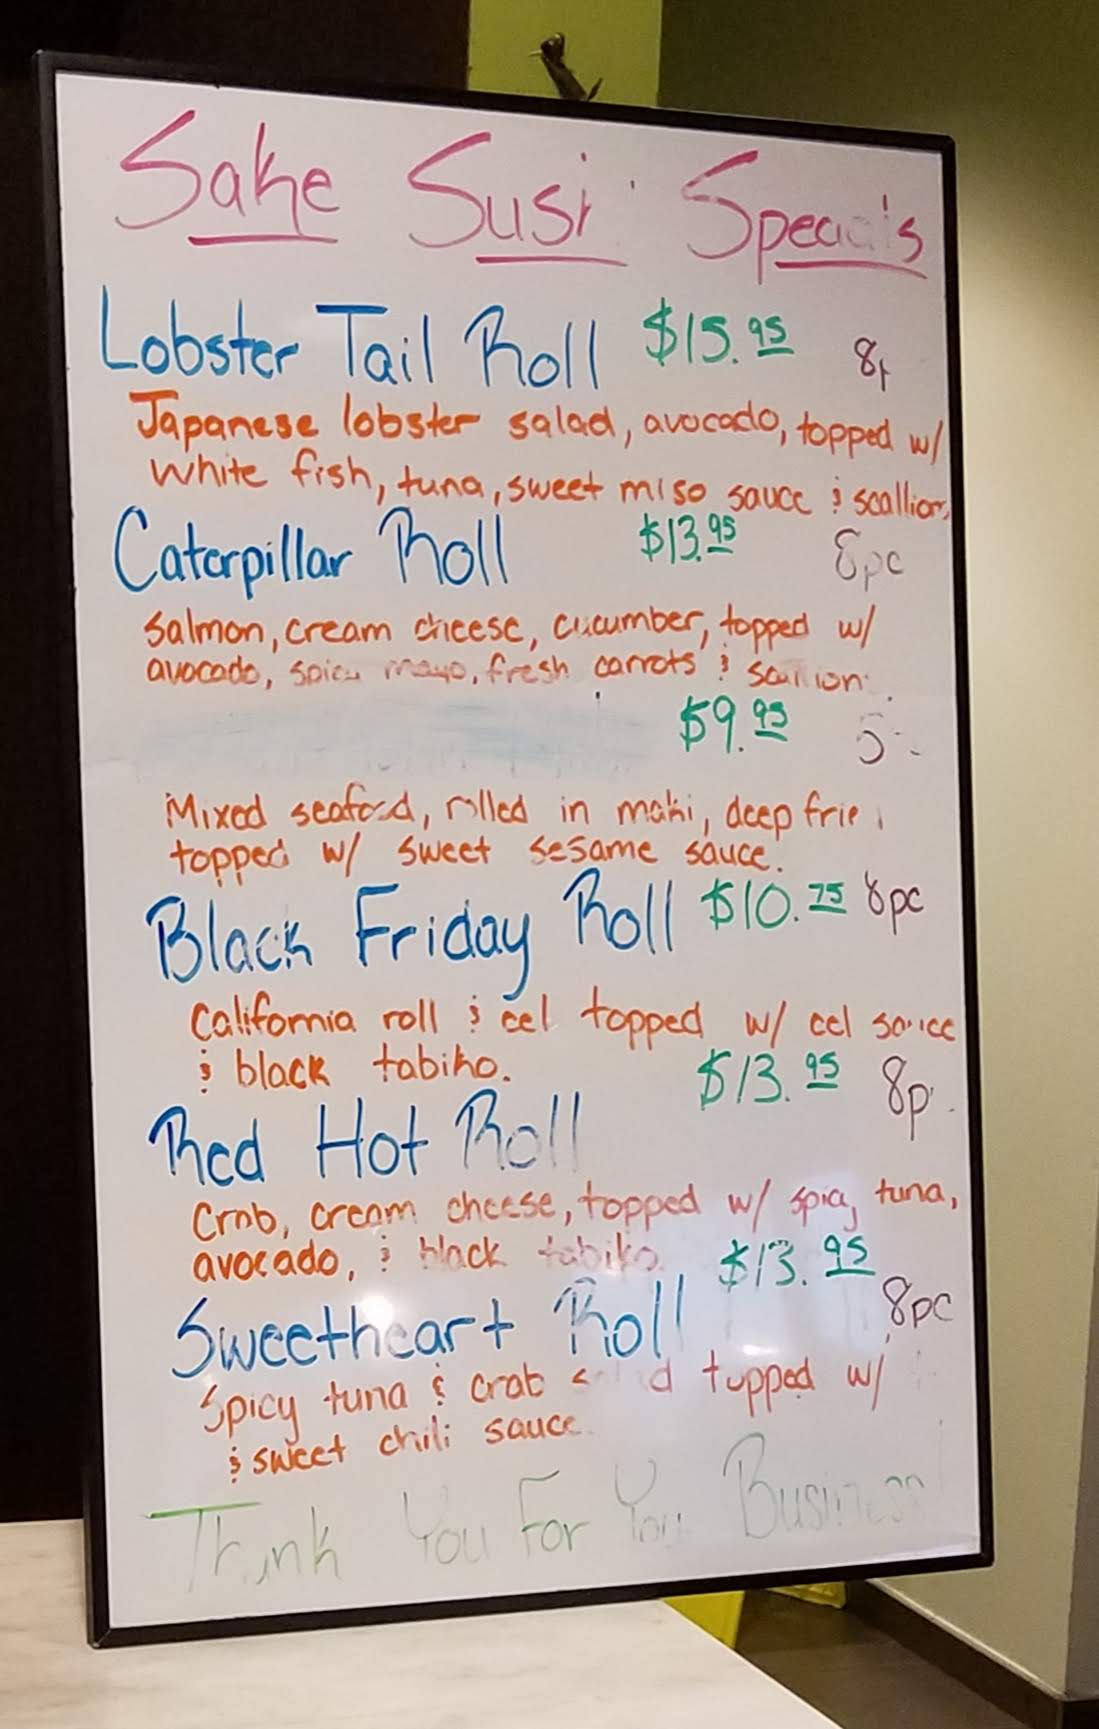 Sake Susi Specials
Lobster Tail Roll $15.95 8p
Japanese lobster salad, avocado, topped w/
white fish, tuna, sweet miso sauce & scallion,
Caterpillar Roll $13.95 8pc
Salmon, cream cheese, cucumber, topped w/
avocado, spicy mayo, fresh carrots & scallion.
$9.95 5
Mixed seafood, rolled in maki, deep frie
topped w/ sweet sesame sauce.
Black Friday Roll $10.75 8pc
California roll & eel topped w/ eel sauce
& black tabiko.
$13.95 8p
Red Hot Roll
Crab, cream cheese, topped w/ spicy tuna,
avocado, & black tabiko.
$13.95
Sweetheart Roll 8pc
Spicy tuna & crab salad topped w/
& sweet chili sauce.
Thank You For You Business!